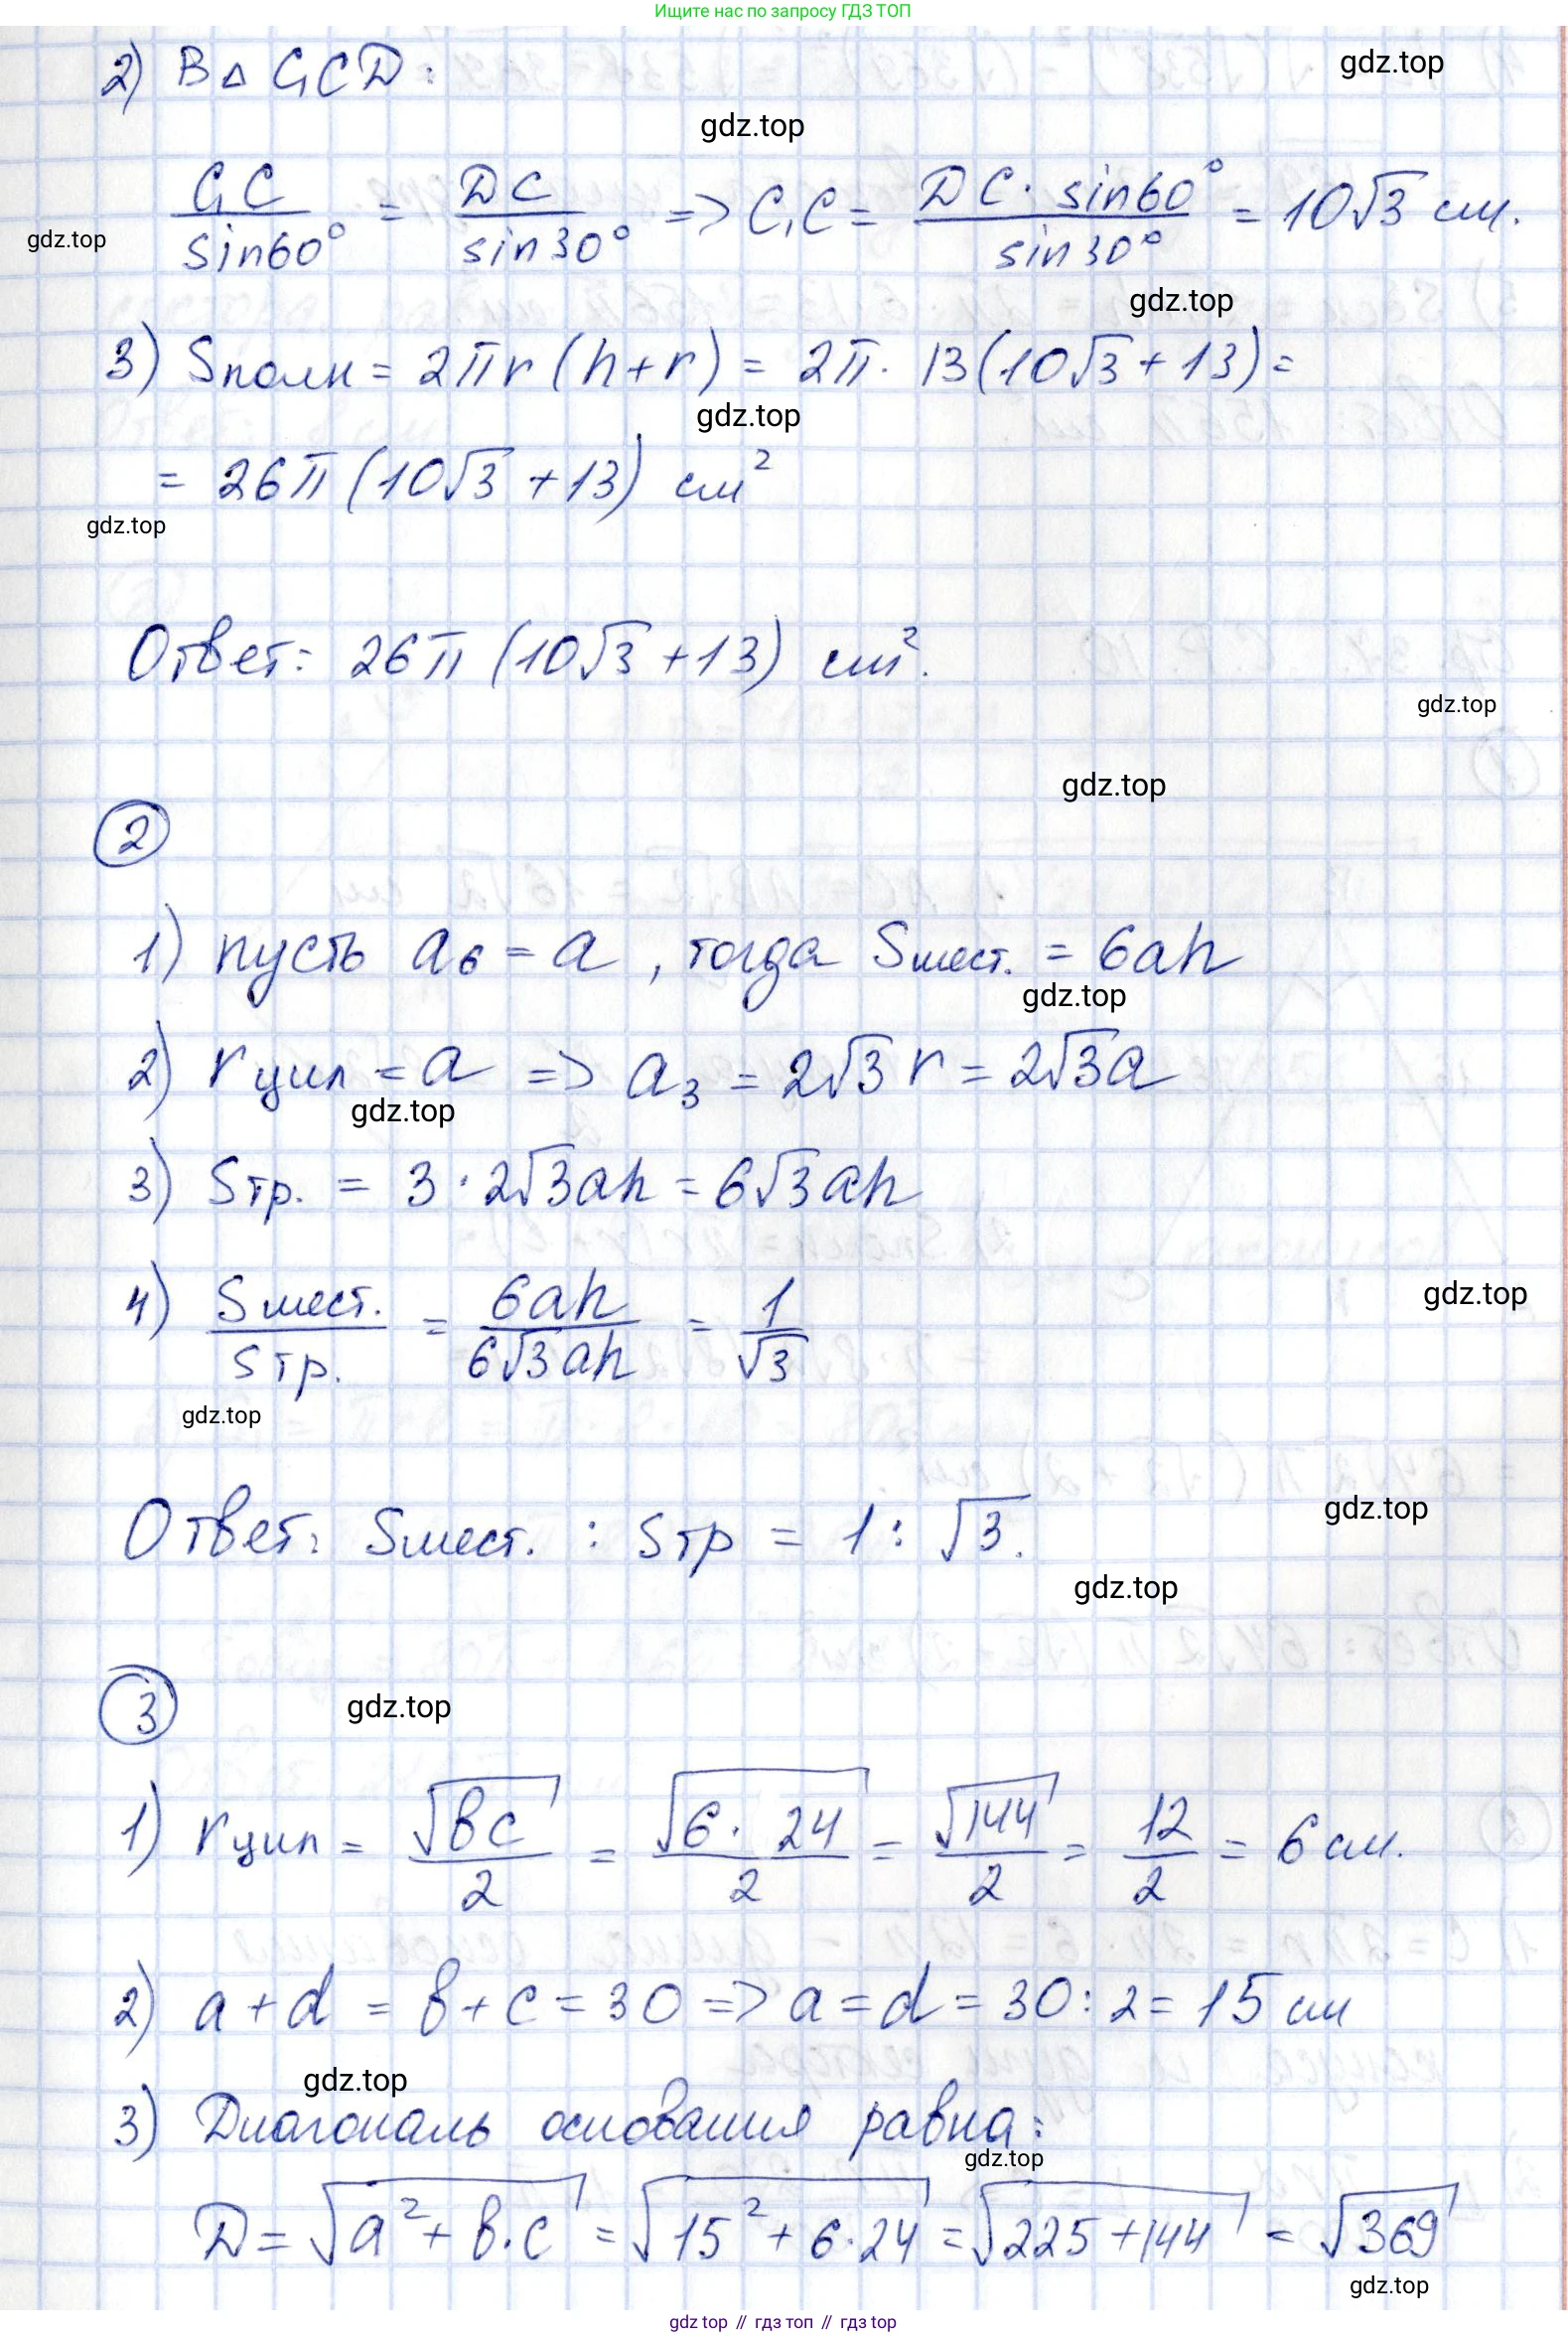 Ищите нас по запросу ГДЗ ТОП
2) В △ C₁CD:
gdz.top
gdz.top
C₁C/sin60° = DC/sin30° => C₁C = DC · sin60°/sin30° = 10√3 см.
gdz.top
gdz.top
3) Sполн = 2πr (h+r) = 2π · 13(10√3 + 13) =
gdz.top
= 26π (10√3 + 13) см²
gdz.top
Ответ: 26π (10√3 + 13) см².
gdz.top
gdz.top
2
1) пусть a₆ = a, тогда Sшест. = 6ah
gdz.top
2) rцил = a => a₃ = 2√3 r = 2√3a
gdz.top
3) Sтр. = 3 · 2√3ah = 6√3ah
4) Sшест./Sтр. = 6ah/6√3ah = 1/√3
gdz.top
gdz.top
Ответ: Sшест. : Sтр = 1 : √3.
gdz.top
gdz.top
3
gdz.top
1) rцил = √bc/2 = √6 · 24/2 = √144/2 = 12/2 = 6 см.
2) a + d = b + c = 30 => a = d = 30 : 2 = 15 см
gdz.top
3) Диагональ основания равна:
gdz.top
D = √a² + b · c = √15² + 6 · 24 = √225 + 144 = √369
gdz.top
gdz top // гдз топ // гдз top